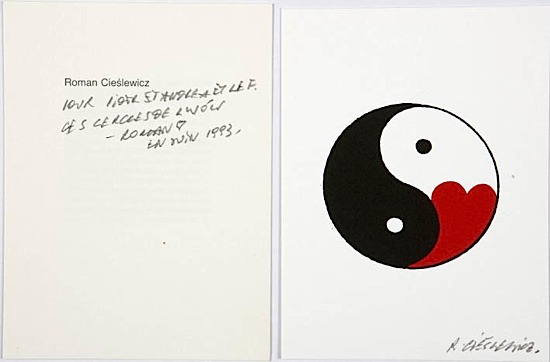 Roman Cieślewicz
POUR PIOTR ET ANDREA ET LE F.
CES CERCLES DE LWÓW
– ROMAN ♡
EN JUIN 1993.
R. CIEŚLEWICZ.